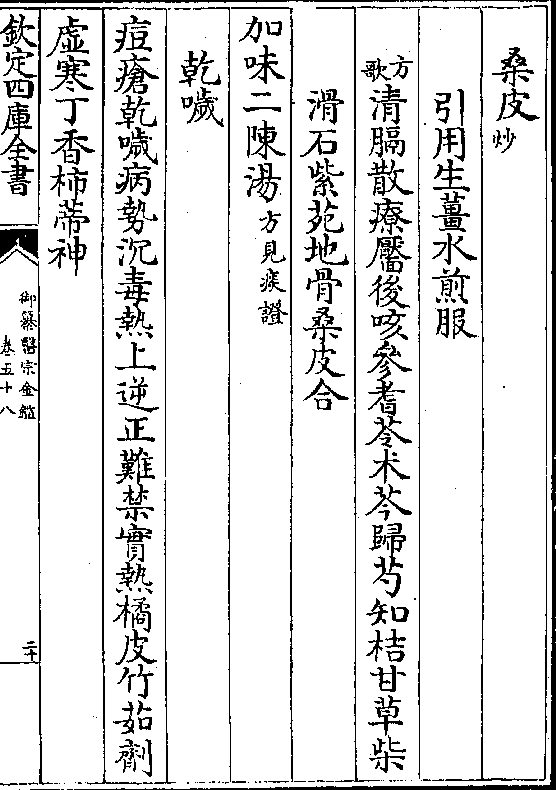 桑皮炒
引用生薑水煎服
方歌清膈散療靨後咳參耆苓朮芩歸芍知桔甘草柴
滑石紫菀地骨桑皮合
加味二陳湯方見痰證
乾嘊
痘瘡乾嘊病勢沉毒熱上逆正難禁實熱橘皮竹茹劑
虛寒丁香柿蒂神
欽定四庫全書
御纂醫宗金鑑
卷五十八
二十